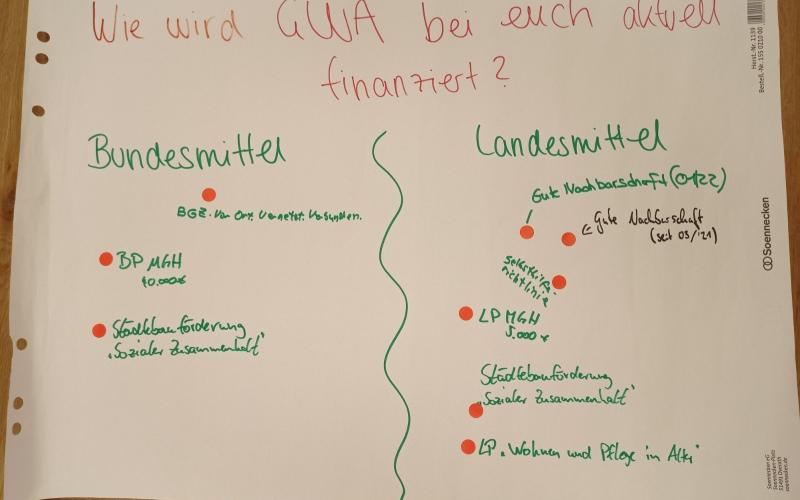 Wie wird GWA bei euch aktuell
finanziert?
Bundesmittel
BGZ. Vor Ort. Vernetzt. Verbunden.
BP MGH
40.000€
Städtebauförderung
„Sozialer Zusammenhalt"
Landesmittel
Gute Nachbarschaft (01/22)
Gute Nachbarschaft
(seit 03/'21)
Selbsthilfe-
richtlinie
LP MGH
5.000 €
Städtebauförderung
„Sozialer Zusammenhalt"
LP „Wohnen und Pflege im Alter"
Herst.-Nr. 1139
Bestell.-Nr. 155 0210 00
Soennecken
Soennecken eG
Soennecken-Platz
51491 Overath
soennecken.de